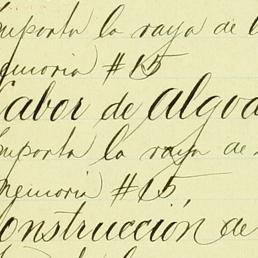 mporta la raya de l
emoria #15
abor de algod
mporta la raya de
emoria #15
onstrucción de